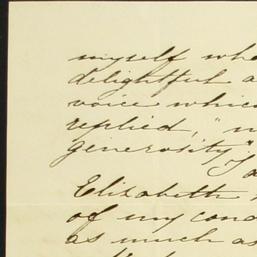 myself whe
delightful a
voice which
replied, "n
generosity".
"I a
Elizabeth
of my cond
as much as